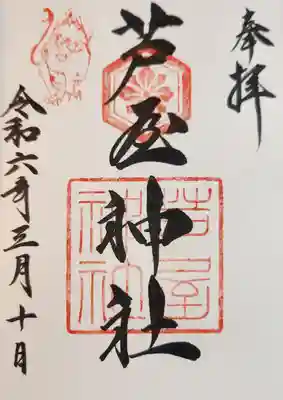 奉拝
芦屋神社
芦屋神社
令和六年三月十日